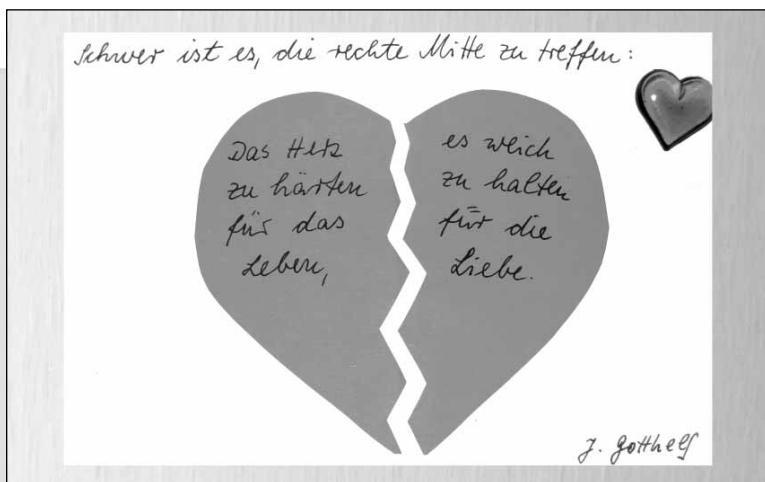 Schwer ist es, die rechte Mitte zu treffen:
Das Herz
zu härten
für das
Leben,
es weich
zu halten
für die
Liebe.
J. Gotthelf